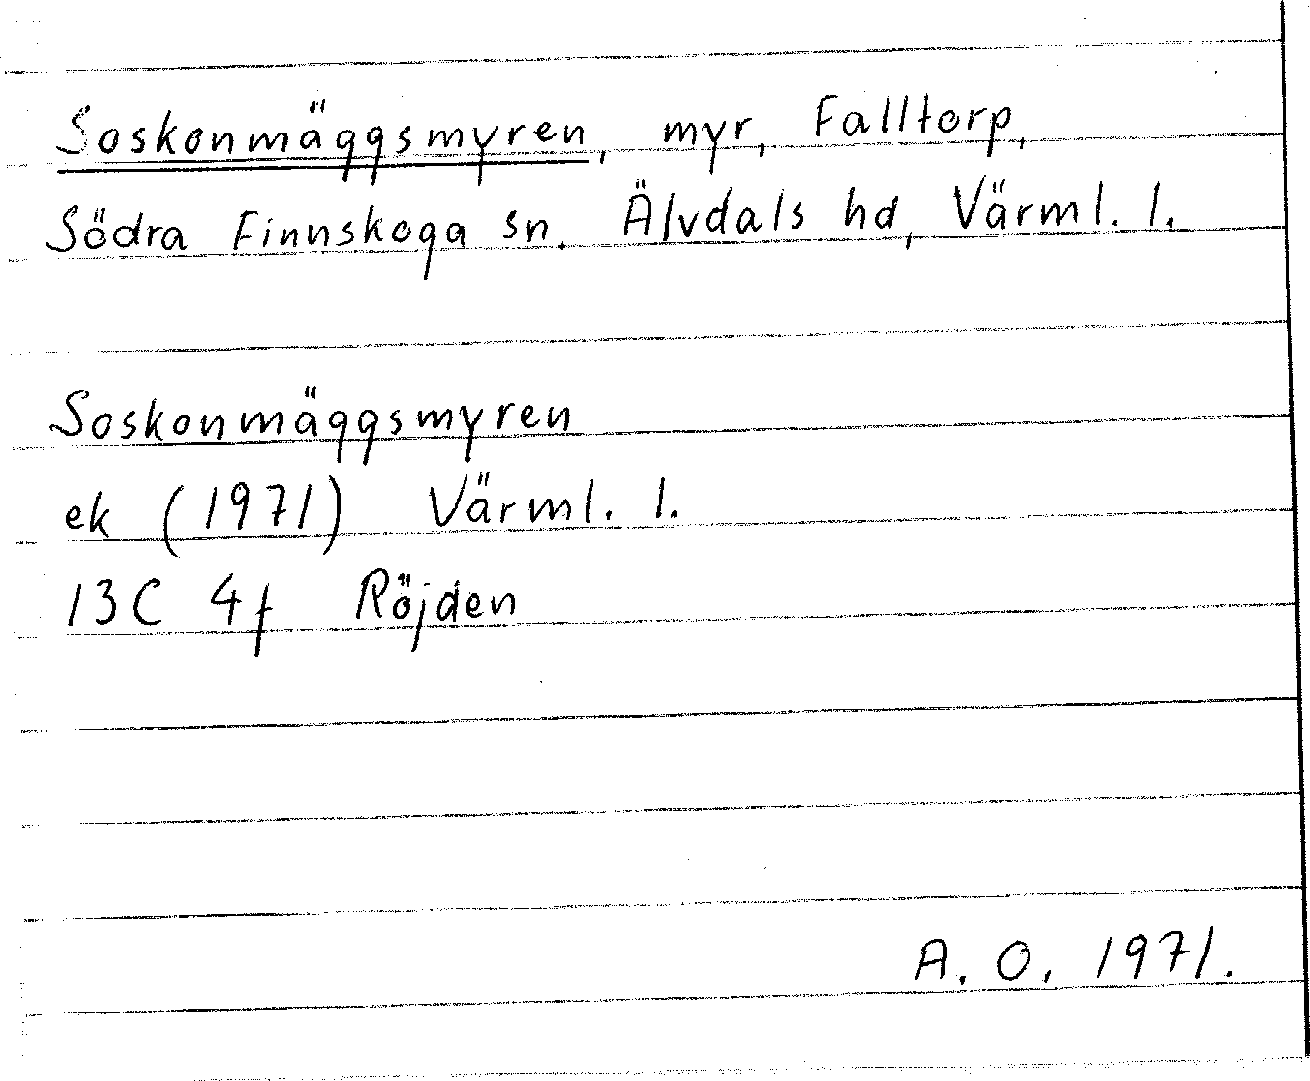 Soskonmäggsmyren, myr, Falltorp,
Södra Finnskoga sn. Älvdals hd, Värml. l.
Soskonmäggsmyren
ek (1971) Värml. l.
13C 4f Röjden
A. O. 1971.